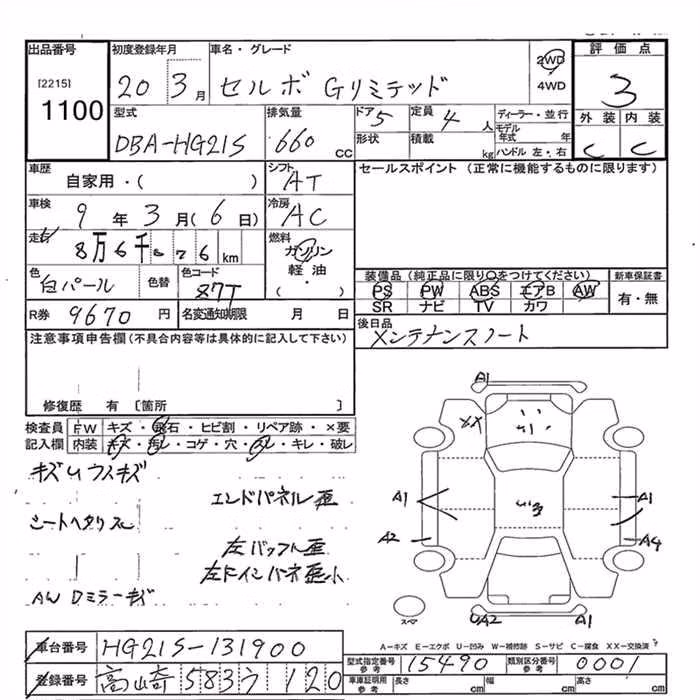 出品番号 初度登録年月 車名・グレード 評価点
[2215] 1100 20 3月 セルボ Gリミテッド 2WD 4WD 3
型式 排気量 ドア 5 定員 4人 ディーラー・並行 外装 内装
DBA-HG21S 660 CC 形状 積載 kg モデル年式 年 ハンドル 左・右 C C
車歴 自家用・( ) シフト AT セールスポイント (正常に機能するものに限ります)
車検 9年 3月 (6日) 冷房 AC
走行 8万6千 76 km 燃料 ガソリン 軽油・( )
色 白パール 色替 色コード Z7T 装備品 (純正品に限り○をつけてください) 新車保証書
PS PW ABS エアB AW 有・無
SR ナビ TV カワ
R券 9670 円 名変通知期限 月 日 後日品
注意事項申告欄 (不具合内容等は具体的に記入して下さい) メンテナンスノート
修復歴 有 [箇所 ]
検査員 FW キズ・飛石・ヒビ割・リペア跡・×要
記入欄 内装 キズ・汚レ・コゲ・穴・スレ・キレ・破レ
A1
XX
キズ
エンドパネル歪
A1 A1
シートヘタリ
A2 A4
左バックフロ歪
左Fインパネ歪小
AW Dミラーキズ
スペア A2 A1
A-キズ E-エクボ U-凹み W-補修跡 S-サビ C-腐食 XX-交換済
車台番号 HG21S-131900
型式指定番号 参考 15490 類別区分番号 参考 0001
登録番号 高崎 583 う 120
車庫証明用 参考 長さ cm 幅 cm 高さ cm